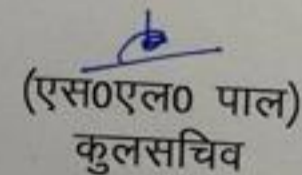 (एस0एल0 पाल)
कुलसचिव